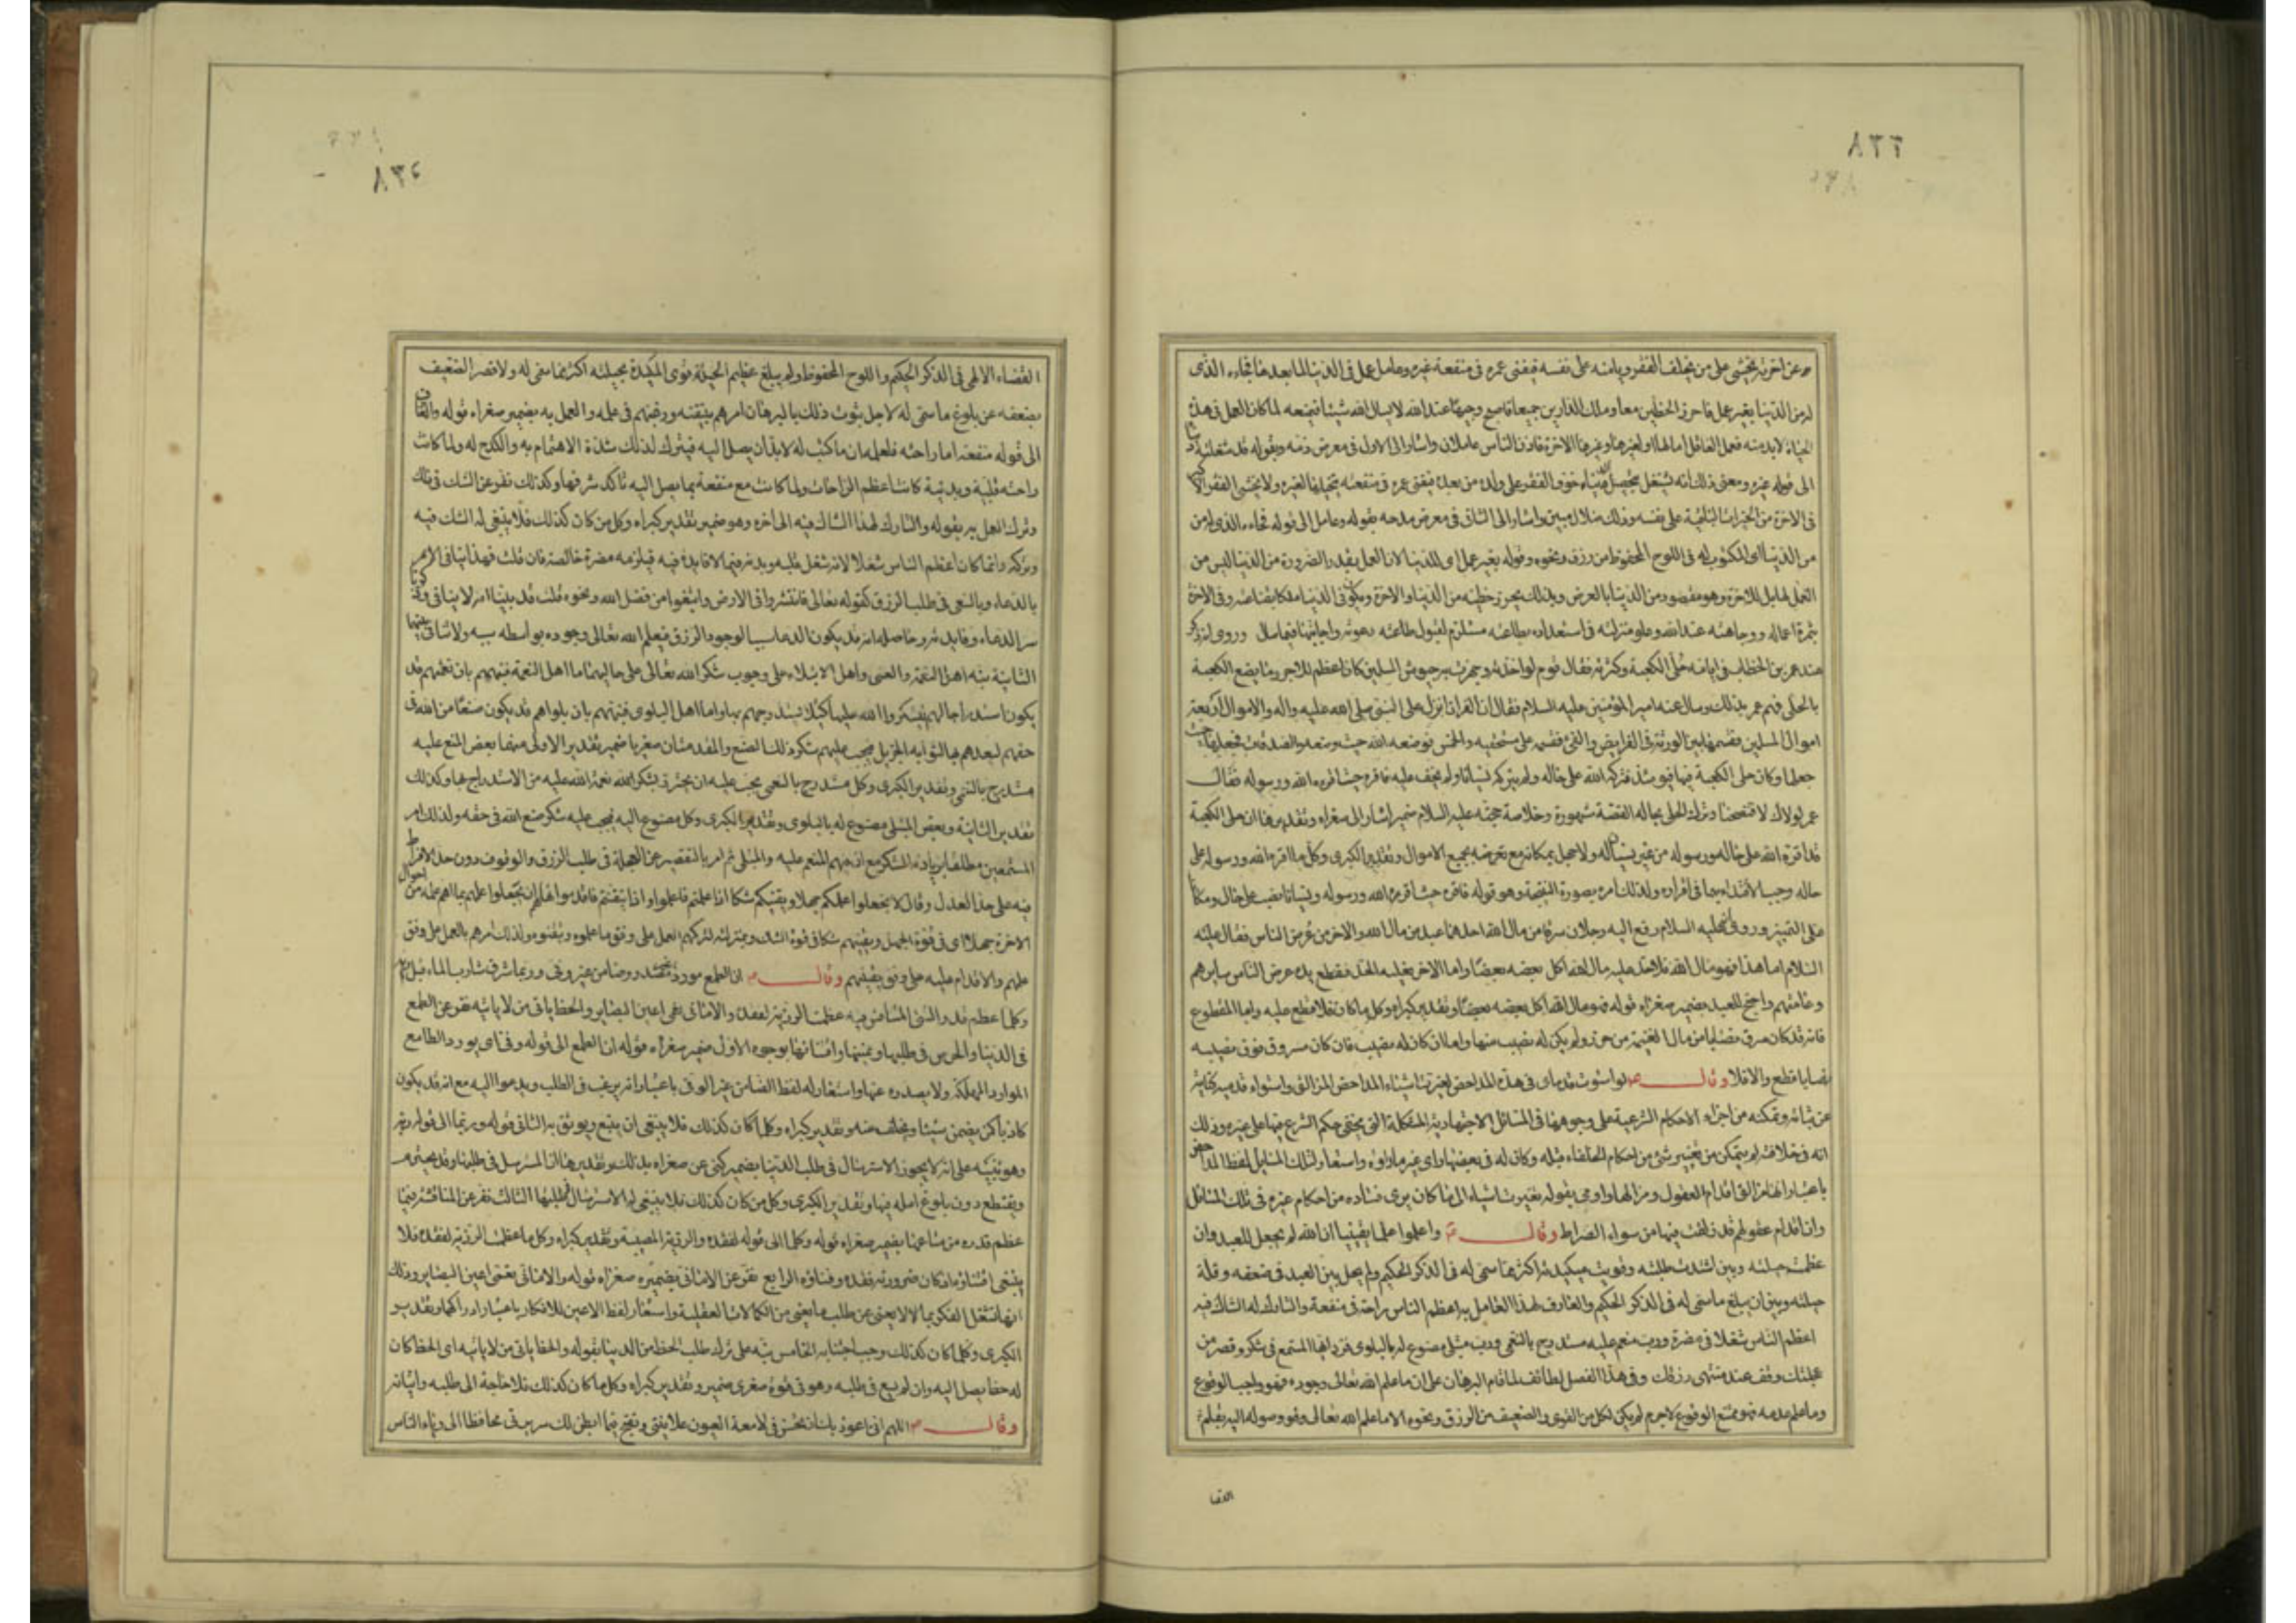 ٨٣٣
عن اخرته يخشى على من يخلف الفقر ويامنه على نفسه فيفنى عمره فى منفعة غيره وعامل عمل فى الدنيا لما بعدها فجاءه الذى
له من الدنيا بغير عمل فاحرز الحظين معا وملك الدارين جميعا فاصبح وجيها عند الله لا يسال الله شيئا فيمنعه لما كان العمل فى هذه
الحياة لابد منه فعمل العاقل اما لها او لغيرها وغيرها الاخرة فاذن الناس عاملان واشار الى الاول فى معرض ذمه بقوله قد شغلته دنياه
الى قوله غيره ومعنى ذلك انه يشتغل بتحصيل الدنيا خوف الفقر على ولده من بعده فيفنى عمره فى منفعة يتخيلها لغيره ولا يخشى الفقر الاكبر
فى الاخرة من الخيرات الباقية على نفسه وذلك ضلال مبين واشار الى الثانى فى معرض مدحه بقوله وعامل الى قوله فجاءه الذى له من
من الدنيا اى المكتوب له فى اللوح المحفوظ من رزق ونحوه وقوله بغير عمل اى للدنيا لان العمل بقدر الضرورة من الدنيا ليس من
العمل لها بل للاخرة وهو مقصود من الدنيا بالعرض وبذلك يحرز حظيه من الدنيا والاخرة ويكون فى الدنيا ملكا بقناعته وفى الاخرة
بثمرة اعماله ووجاهته عند الله وعلو منزلته فى استعداده بطاعته مستلزم لقبول طاعته دعوته واجابتها فيما سال وروى انه ذكر
عند عمر بن الخطاب فى ايامه حلى الكعبة وكثرته فقال قوم لو اخذته وجهزت به جيوش المسلمين كان اعظم للاجر وما يصنع الكعبة
بالحلى فهم عمر بذلك وسال عنه امير المؤمنين عليه السلام فقال ان القران انزل على النبى صلى الله عليه واله والاموال اربعة
اموال المسلمين فقسمها بين الورثة فى الفرايض والفىء فقسمه على مستحقيه والخمس فوضعه الله حيث وضعه والصدقات فجعلها الله حيث
جعلها وكان حلى الكعبة فيها فيومئذ فتركه الله على حاله ولم يتركه نسيانا ولم يخف عليه فاقره حيث اقره الله ورسوله فقال
عمر لولاك لافتضحنا وترك الحلى بحاله القصة مشهورة وخلاصة حجته عليه السلام ضمير اشار الى صغراه وتقديرها ان حلى الكعبة
قد اقره الله على حاله ورسوله من غير نسيان له ولا جهل بمكانه مع تعرضه بجميع الاموال وتقدير الكبرى وكل ما اقره الله ورسوله على
حاله وجب الاقتداء بهما فى اقراره ولذلك امره بصورة النتيجة وهو قوله فاقره حيث اقره الله ورسوله ونسيانا نصب على حال ومكانا
على التمييز وروى انه عليه السلام رفع اليه رجلان سرقا من مال الله احدهما عبد من مال الله والاخر من عرض الناس فقال عليه
السلام اما هذا فهو مال الله فلا حد عليه مال الله اكل بعضه بعضا واما الاخر فعليه الحد فقطع يده عرض الناس سايرهم
وعامتهم واحتج للعبد بضمير صغراه قوله فهو مال الله اكل بعضه بعضا وتقدير كبراه وكل ما كان فلا قطع عليه واما المقطوع
فانه قد كان سرق نصابا من مال الغنيمة من حرز ولم يكن له نصيب منها واما ان كان له نصيب فان كان مسروق فوق نصيبه
نصابا قطع والا فلا وقال لو استوت قدماى فى هذه المداحض لغيرت اشياء المداحض المزالق واستواء قدميه كناية
عن ثباته وتمكنه من اجراء الاحكام الشرعية على وجوهها فى المسائل الاجتهادية المشكلة التى يختفى حكم الشرع فيها على غيره وذلك
انه فى خلافته لم يتمكن من تغيير شىء من احكام الخلفاء قبله وكان له فى بعضها راى غير ما راوه واستعار لتلك المسايل لفظ المداحض
باعتبار انها مزالق اقدام العقول ومزالها واومى بقوله بغيرت اشياء الى ما كان يرى فساده من احكام غيره فى تلك المسائل
وان اقدام عقولهم قد زلقت فيها من سواء الصراط وقال واعلموا علما يقينا ان الله لم يجعل للعبد وان
عظمت حيلته واشتدت طلبته وقويت مكيدته اكثر مما سمى له فى الذكر الحكيم ولم يحل بين العبد فى ضعفه وقلة
حيلته وبين ان يبلغ ما سمى له فى الذكر الحكيم والعارف لهذا العامل به اعظم الناس راحة فى منفعة والتارك له الشاك فيه
اعظم الناس شغلا فى مضرة ورب منعم عليه مستدرج بالنعمى ورب مبتلى مصنوع له بالبلوى فزد ايها المستمع فى شكرك وقصر من
عجلتك وقف عند منتهى رزقك وفى هذا الفصل لطائف لما قام البرهان على ان ما علم الله تعالى وجوده فهو واجب الوقوع
وما علم عدمه فهو ممتنع الوقوع لاجرم لم يكن لكل من القوى والضعيف من الرزق ونحوه الا ما علم الله تعالى وصوله اليه بقلم
القضا
٨٣٤
القضاء الالهى فى الذكر الحكيم واللوح المحفوظ ولم يبلغ عظيم الحيلة قوى المكيدة بحيلته اكثر مما سمى له ولا قصر الضعيف
بضعفه عن بلوغ ما سمى له لاجل ثبوت ذلك بالبرهان امرهم بتيقنه ورغبهم فى علمه والعمل به بضمير صغراه قوله والعارف
الى قوله منفعة اما راحته فلعلمه ان ما كتب له لابد ان يصل اليه فيترك لذلك شدة الاهتمام به والكدح له ولما كانت
راحته قلبية وبدنية كانت اعظم الراحات ولما كانت مع منفعة بما يصل اليه تاكد شرفها وكذلك نفر عن الشك فى ذلك
وترك العمل به بقوله والتارك لهذا الشاك فيه الى اخره وهو ضمير تقدير كبراه وكل من كان كذلك فلا ينبغى له الشك فيه
وتركه وانما كان اعظم الناس شغلا لانه شغل قلبه وبدنه فيما لا فايدة فيه فيلزمه مضرة خالصة فان قلت فهذا ينافى الامر
بالدعاء وبالسعى فى طلب الرزق كقوله تعالى فانتشروا فى الارض وابتغوا من فضل الله ونحوه قلت قد بينا انه لا ينافى
سر الدعاء وفايدته وحاصله انه قد يكون الدعا سببا لوجود الرزق فيعلم الله تعالى وجوده بواسطه سببه ولا تنافى بينهما
الثانية نبه اهل النعمة والغنى واهل الابتلاء على وجوب شكر الله تعالى على حاليهما اما اهل النعمة فنبههم بان نعمتهم قد
يكون استدراجا لهم فيشكروا الله عليها كيلا يستدرجهم بها واما اهل البلوى فنبههم بان بلواهم قد يكون صنعا من الله فى
حقهم ليعدهم بها لثوابه الجزيل فيجب عليهم شكر ذلك الصنع والمقدمتان صغريا ضمير تقدير الاولى منهما بعض المنعم عليه
مستدرج بالنعمى وتقدير الكبرى وكل مستدرج بالنعمى يجب عليه ان يحترز بشكر الله نعمة الله عليه من الاستدراج بها وكذلك
تقدير الثانية وبعض المبتلى مصنوع له بالبلوى وتقدير الكبرى وكل مصنوع اليه فيجب عليه شكر صنع الله فى حقه ولذلك امر
المستمعين مطلقا بزيادة الشكر مع ان فيهم المنعم عليه والمبتلى ثم امر بالتقصير عن العجلة فى طلب الرزق والوقوف دون حد الافراط
فيه على حد العدل وقال لا تجعلوا علمكم جهلا ويقينكم شكا اذا علمتم فاعملوا واذا تيقنتم فاقدموا لان لم يجعلوا علمهم بما اهم عمله من احوال
الاخرة جهلا اى فى قوة الجهل ويقينهم شكا فى قوة الشك وبمنزلته لتركهم العمل على وفق ما علموه وتيقنوه ولذلك امرهم بالعمل على وفق
علمهم والاقدام عليه على وفق يقينهم وقال ان الطمع مورد غير مصدر وضامن غير وفى وربما شرق شارب الماء قبل ريه
وكلما عظم قدر الشىء المتنافس فيه عظمت الرزية لفقده والامانى تعمى اعين البصاير والحظ ياتى من لا ياتيه نفر عن الطمع
فى الدنيا والحرص فى طلبها وتمنيها واقتنائها بوجوه الاول ضمير صغراه قوله ان الطمع الى قوله وفى اى يورد الطامع
الموارد المهلكة ولا يصدره عنها واستعار له لفظ الضامن غير الوفى باعتبار انه يرغب فى الطلب ويدعوا اليه مع انه قد يكون
كاذبا كمن يضمن شيئا ويخلف ضمنه وتقدير كبراه وكلما كان كذلك فلا ينبغى ان يتبع ويوثق به الثانى قوله وربما الى قوله ريه
وهو تنبيه على انه لا يجوز الاسترسال فى طلب الدنيا بضمير كنى عن صغراه بذلك وتقديرها ان المسترسل فى طلبها وقد يخترم
ويقتطع دون بلوغ امله فيها وتقدير الكبرى وكل من كان كذلك فلا ينبغى له الاسترسال فى طلبها الثالث نفر عن المنافسة فيما
عظم قدره من متاعها بضمير صغراه قوله وكلما الى قوله لفقده والرزية المصيبة وتقدير كبراه وكل ما عظمت الرزية لفقده فلا
ينبغى اقتناؤه اذ كان ضرورته فقده وفناؤه الرابع نفر عن الامانى بضمير صغراه قوله والامانى تعمى اعين البصاير وذلك
انها تشغل الفكر بما لا يعنى عن طلب ما يعنى من الكمالات العقلية واستعار لفظ الاعين للافكار باعتبار ادراكها وتقدير
الكبرى وكلما كان كذلك وجب اجتنابه الخامس نبه على ترك طلب الحظ من الدنيا بقوله والحظ ياتى من لا ياتيه اى الحظ كان
له حظا يصل اليه وان لم يسع فى طلبه وهو فى قوة صغرى ضمير وتقدير كبراه وكل ما كان كذلك فلا حاجة الى طلبه واتيانه
وقال اللهم انى اعوذ بك ان تحسن فى لامعة العيون علانيتى وتقبح فيما ابطن لك سريرتى محافظا الى رياء الناس